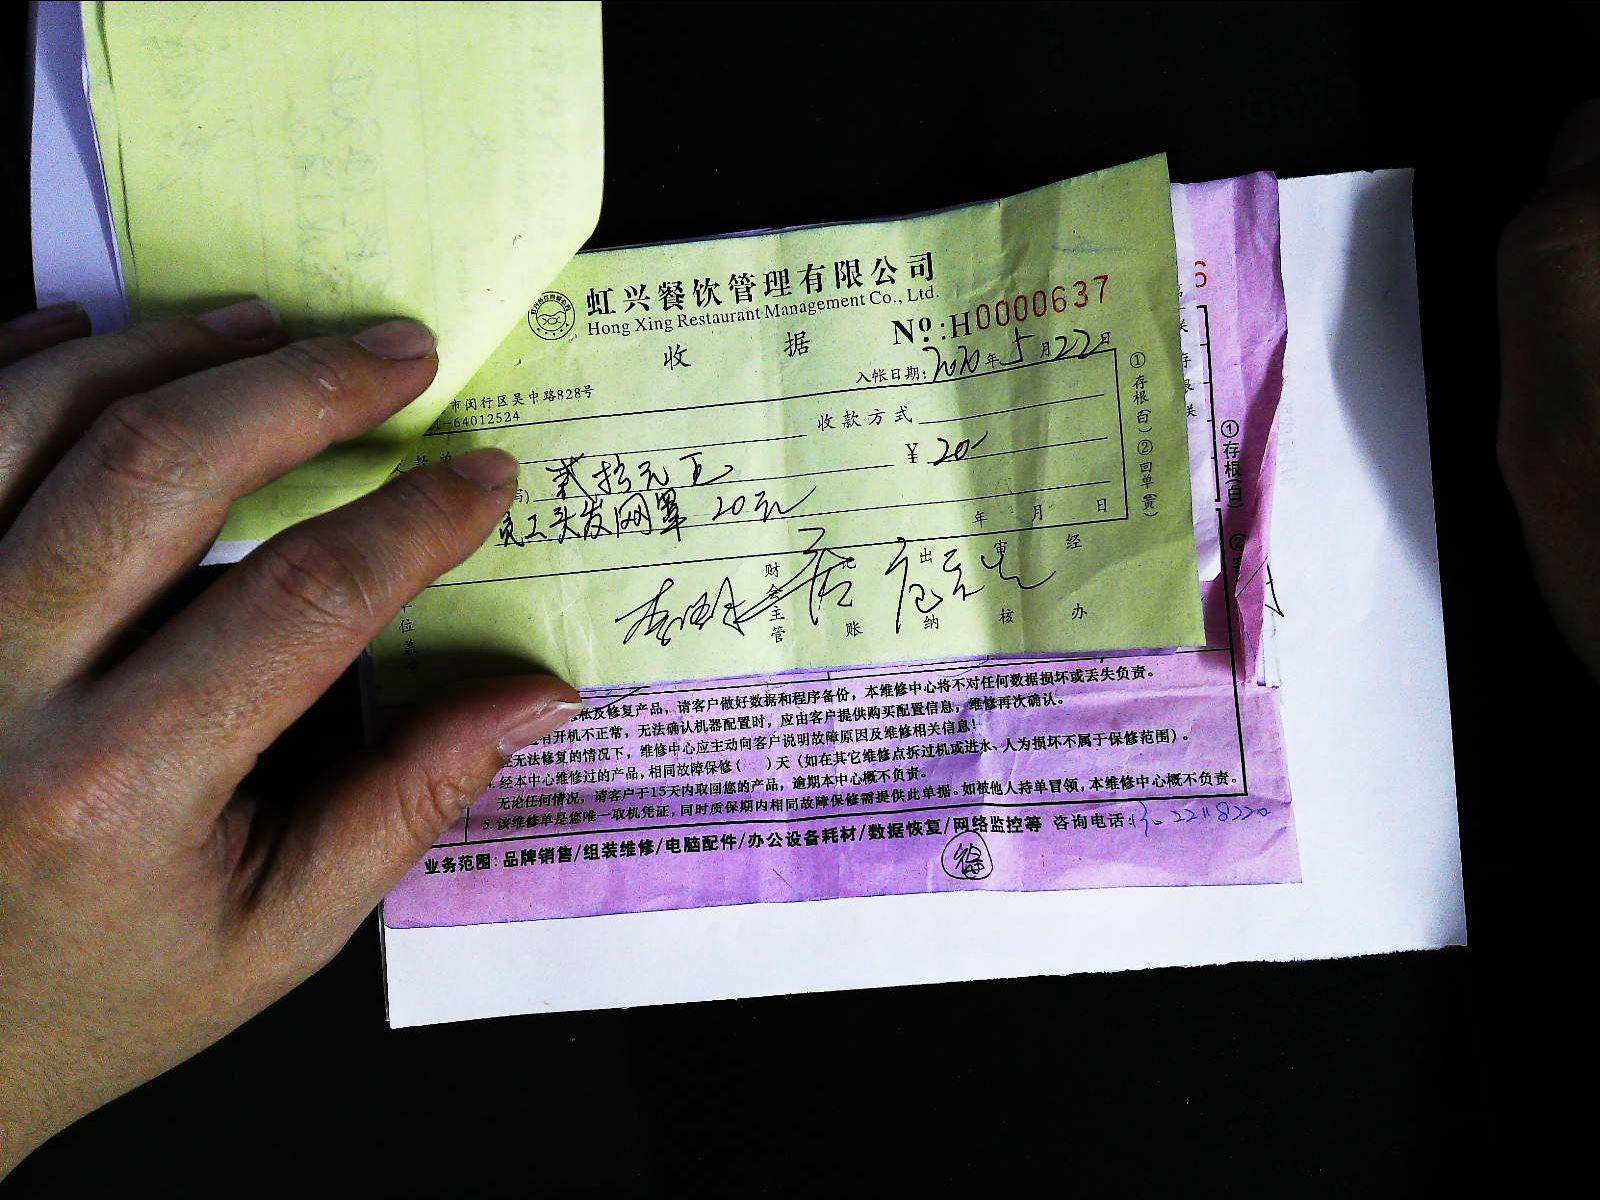 虹兴餐饮管理有限公司
Hong Xing Restaurant Management Co., Ltd.
收 据
№:H0000637
入帐日期: 2020年5月22日
市闵行区吴中路828号
1-64012524
收款方式
款单
贰拾元正
¥ 20-
员工头发网罩 20元
年 月 日
①存根(白) ②回单(黄)
位盖
财会主管
账
出纳
审核
经办
6
①存根(白)
私及修复产品，请客户做好数据和程序备份，本维修中心将不对任何数据损坏或丢失负责。
有开机不正常，无法确认机器配置时，应由客户提供购买配置信息，维修再次确认。
无法修复的情况下，维修中心应主动向客户说明故障原因及维修相关信息！
4. 经本中心维修过的产品，相同故障保修( )天（如在其它维修点拆过机或进水、人为损坏不属于保修范围）。
无论任何情况，请客户于15天内取回您的产品，逾期本中心概不负责。
5. 该维修单是您唯一取机凭证，同时质保期内相同故障保修需提供此单据。如被他人持单冒领，本维修中心概不负责。
业务范围:品牌销售/组装维修/电脑配件/办公设备耗材/数据恢复/网络监控等 咨询电话: